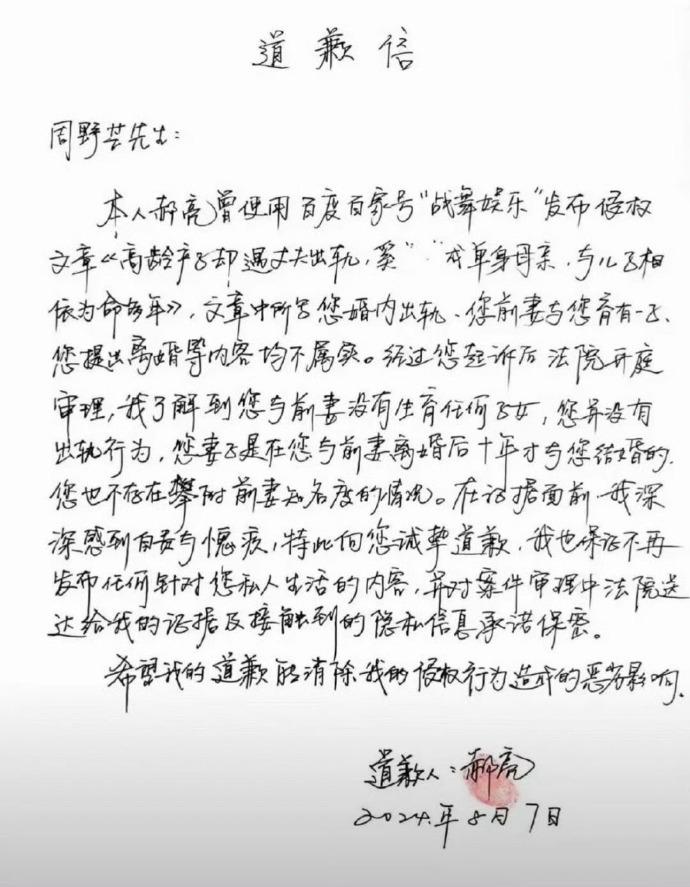 道歉信
周野芒先生：
本人郝亮曾使用百度百家号“战舞娱乐”发布侵权
文章《高龄产子却遇丈夫出轨，奚” ”成单身母亲，与儿子相
依为命多年》，文章中所写您婚内出轨、您前妻与您育有一子、
您提出离婚等内容均不属实。经过您起诉后法院开庭
审理，我了解到您与前妻没有生育任何子女，您并没有
出轨行为，您妻子是在您与前妻离婚后十年才与您结婚的，
您也不存在攀附前妻知名度的情况。在证据面前，我深
深感到自责与愧疚，特此向您诚挚道歉，我也保证不再
发布任何针对您私人生活的内容，并对案件审理中法院送
达给我的证据及接触到的隐私信息承诺保密。
希望我的道歉能消除我的侵权行为造成的恶劣影响。
道歉人：郝亮
2024年8月7日